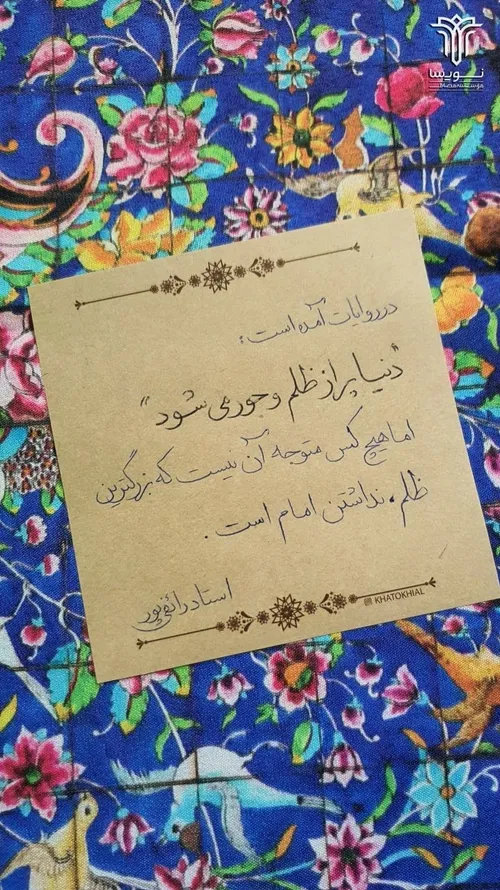 نویسا
در روایات آمده است:
"دنیا پر از ظلم و جور می شود"
اما هیچ کس متوجه آن نیست که بزرگترین
ظلم، نداشتن امام است.
استاد رائفی پور
KHATOKHIAL